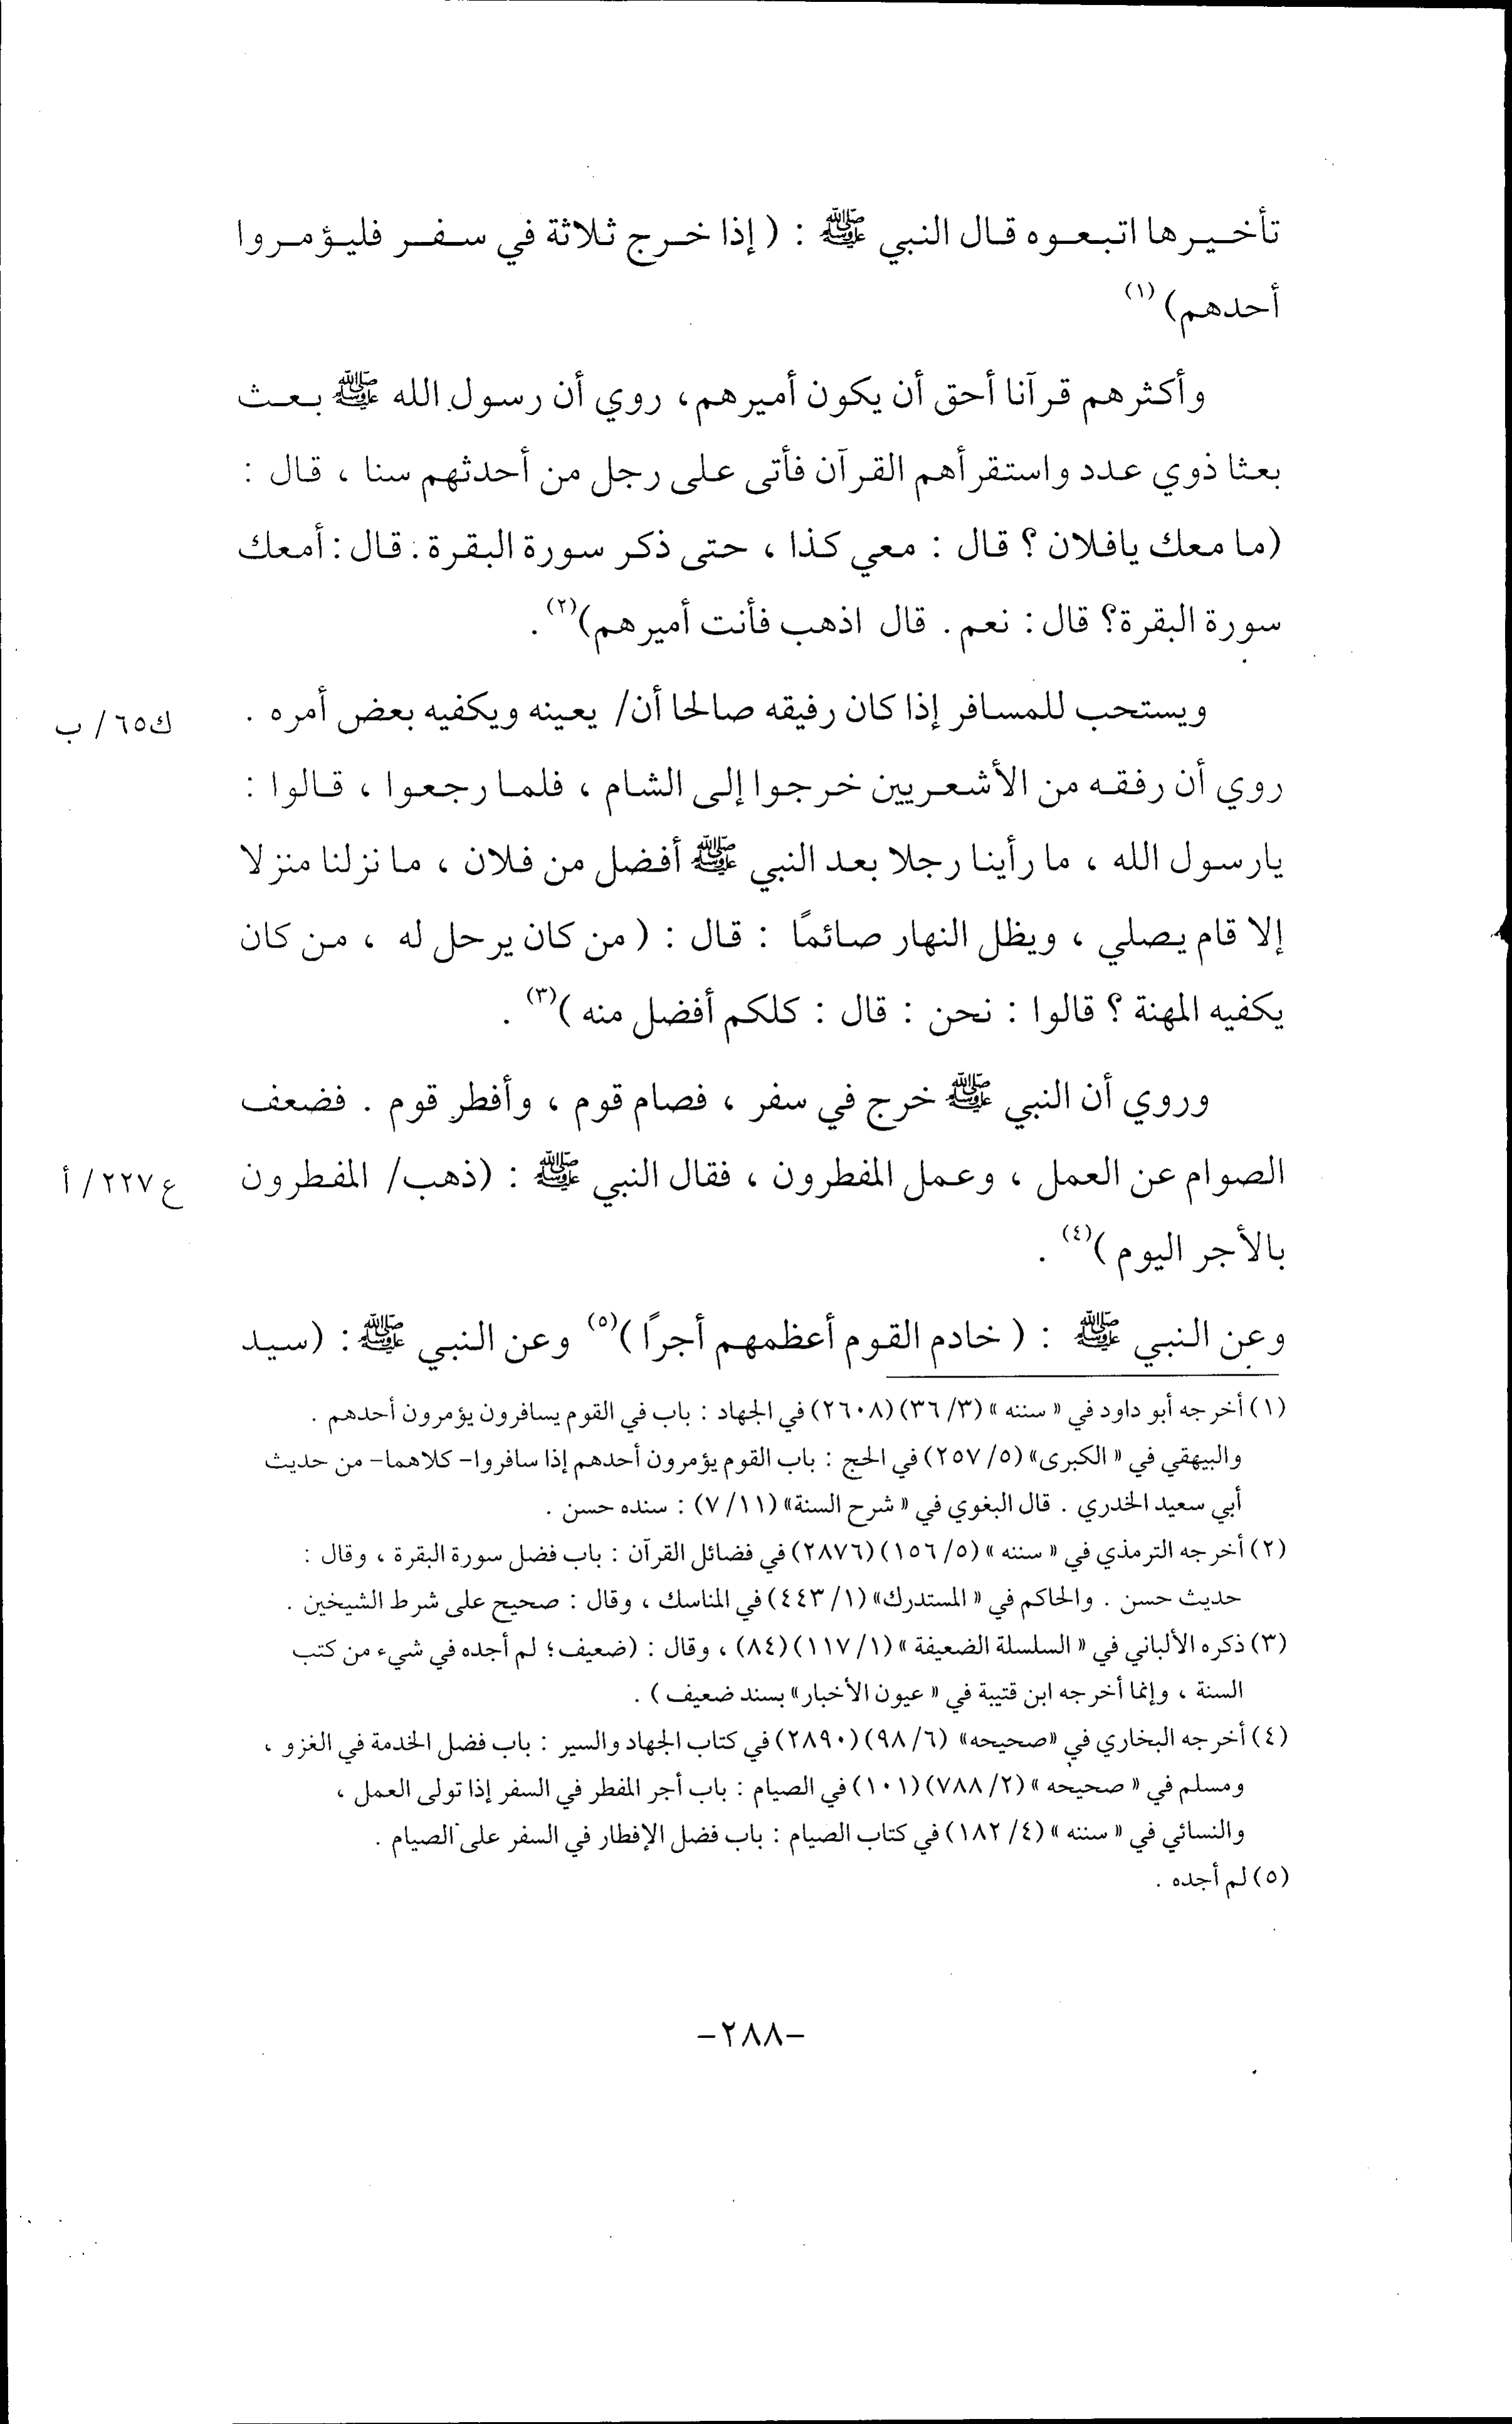 تأخيرها اتبعوه قال النبي ﷺ : ( إذا خرج ثلاثة في سفر فليؤمروا
أحدهم) (١)
وأكثرهم قرآنا أحق أن يكون أميرهم، روي أن رسول الله ﷺ بعث
بعثا ذوي عدد واستقرأهم القرآن فأتى على رجل من أحدثهم سنا ، قال :
(ما معك يافلان ؟ قال : معي كذا ، حتى ذكر سورة البقرة . قال : أمعك
سورة البقرة؟ قال : نعم . قال اذهب فأنت أميرهم)(٢) .
ويستحب للمسافر إذا كان رفيقه صالحا أن/ يعينه ويكفيه بعض أمره .
ك٦٥/ ب
روي أن رفقه من الأشعريين خرجوا إلى الشام ، فلما رجعوا ، قالوا :
يارسول الله ، ما رأينا رجلا بعد النبي ﷺ أفضل من فلان ، ما نزلنا منزلا
إلا قام يصلي ، ويظل النهار صائمًا : قال : ( من كان يرحل له ، من كان
يكفيه المهنة ؟ قالوا : نحن : قال : كلكم أفضل منه )(٣) .
وروي أن النبي ﷺ خرج في سفر ، فصام قوم ، وأفطر قوم . فضعف
الصوام عن العمل ، وعمل المفطرون ، فقال النبي ﷺ : (ذهب/ المفطرون
ع٢٢٧/ أ
بالأجر اليوم )(٤) .
وعن النبي ﷺ : ( خادم القوم أعظمهم أجرًا )(٥) وعن النبي ﷺ : (سيد
(١) أخرجه أبو داود في « سننه » (٣/ ٣٦) (٢٦٠٨) في الجهاد : باب في القوم يسافرون يؤمرون أحدهم .
والبيهقي في « الكبرى» (٥/ ٢٥٧) في الحج : باب القوم يؤمرون أحدهم إذا سافروا- كلاهما- من حديث
أبي سعيد الخدري . قال البغوي في « شرح السنة» (١١/ ٧) : سنده حسن .
(٢) أخرجه الترمذي في « سننه » (٥/ ١٥٦) (٢٨٧٦) في فضائل القرآن : باب فضل سورة البقرة ، وقال :
حديث حسن . والحاكم في « المستدرك» (١/ ٤٤٣) في المناسك ، وقال : صحيح على شرط الشيخين .
(٣) ذكره الألباني في « السلسلة الضعيفة » (١/ ١١٧) (٨٤) ، وقال : (ضعيف؛ لم أجده في شيء من كتب
السنة ، وإنما أخرجه ابن قتيبة في « عيون الأخبار» بسند ضعيف ) .
(٤) أخرجه البخاري في «صحيحه» (٦/ ٩٨) (٢٨٩٠) في كتاب الجهاد والسير : باب فضل الخدمة في الغزو ،
ومسلم في « صحيحه » (٢/ ٧٨٨) (١٠١) في الصيام : باب أجر المفطر في السفر إذا تولى العمل ،
والنسائي في « سننه » (٤/ ١٨٢) في كتاب الصيام : باب فضل الإفطار في السفر على الصيام .
(٥) لم أجده .
-٢٨٨-